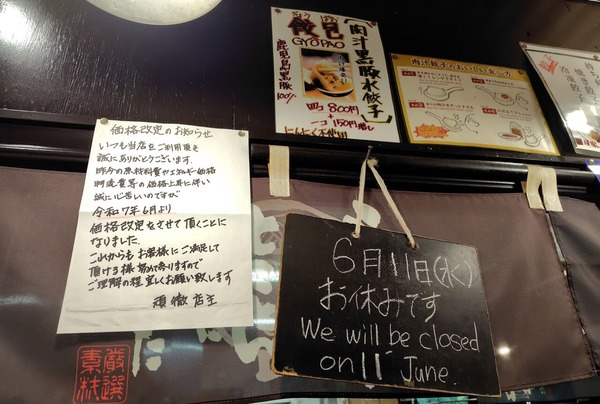 価格改定のお知らせ
いつも当店をご利用頂き
誠にありがとうございます.
昨今の原材料費やエネルギー価格
物流費等の価格上昇に伴い
誠に心苦しいのですが
令和7年6月より
価格改定をさせて頂くことに
なりました.
これからもお客様にご満足して
頂ける様努めて参りますので
ご理解の程宜しくお願い致します
頑徹店主
厳選
素材
餃包
GYOPAO
【肉汁黒豚水餃子】
鹿児島黒豚
100%
四コ 800円
一コ 150円増し
にんにく不使用
肉汁餃子のおいしい食べ方
持ち帰り
焼き餃子
冷凍餃子
6月11日(水)
お休みです
We will be closed
on 11 June.